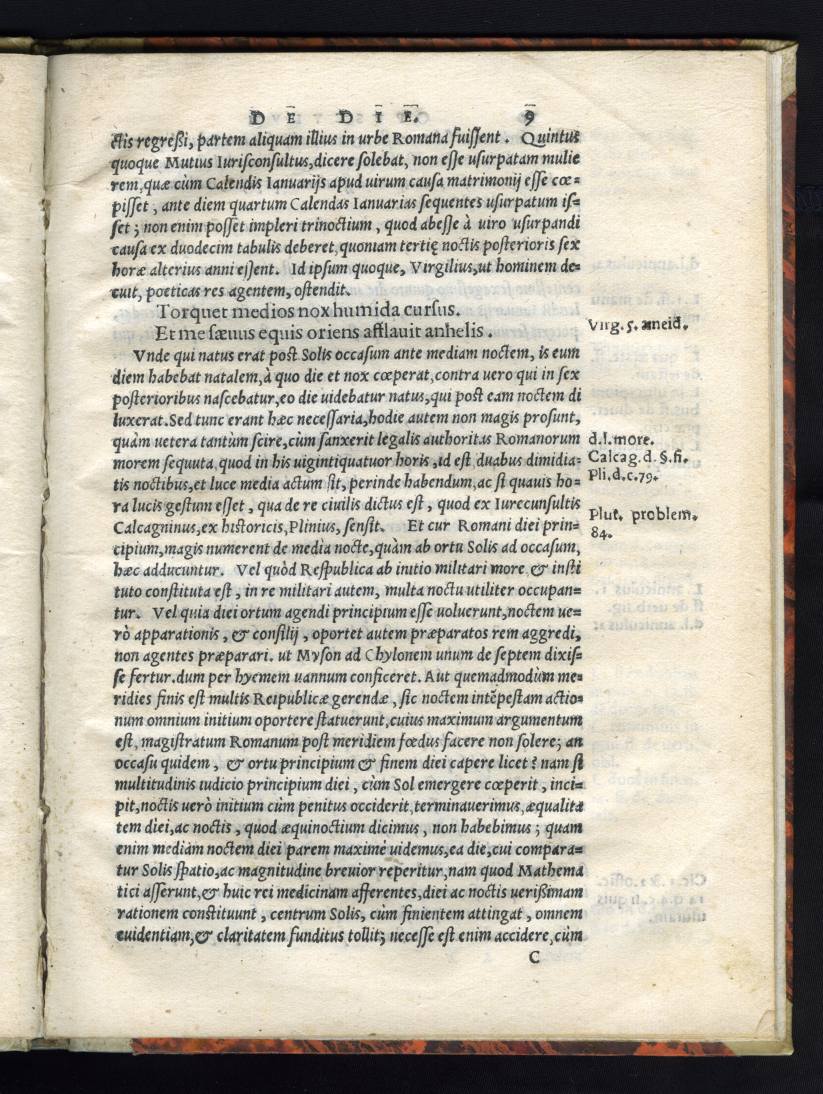 DE DIE. 9
ctis regreßi, partem aliquam illius in urbe Romana fuißent. Quintus
quoque Mutius Iurisconsultus, dicere solebat, non esse usurpatam mulie
rem, quæ cùm Calendis Ianuarijs apud uirum causa matrimonij esse cœ=
pisset, ante diem quartum Calendas Ianuarias sequentes usurpatum is=
set; non enim posset impleri trinoctium, quod abesse à uiro usurpandi
causa ex duodecim tabulis deberet, quoniam tertię noctis posterioris sex
horæ alterius anni essent. Id ipsum quoque, Virgilius, ut hominem de=
cuit, poeticas res agentem, ostendit.
Torquet medios nox humida cursus.
Et me sæuus equis oriens afflauit anhelis.
Virg. 5. æneid.
Vnde qui natus erat post Solis occasum ante mediam noctem, is eum
diem habebat natalem, à quo die et nox cœperat, contra uero qui in sex
posterioribus nascebatur, eo die uidebatur natus, qui post eam noctem di
luxerat. Sed tunc erant hæc necessaria, hodie autem non magis prosunt,
quàm uetera tantùm scire, cùm sanxerit legalis authoritas Romanorum
d.l.more.
morem sequuta, quod in his uigintiquatuor horis, id est, duabus dimidia=
Calcag.d.§.fi.
tis noctibus, et luce media actum sit, perinde habendum, ac si quauis ho=
Pli.d.c.79.
ra lucis gestum esset, qua de re ciuilis dictus est, quod ex Iurecunsultis
Calcagninus, ex historicis, Plinius, sensit. Et cur Romani diei prin=
Plut. problem.
84.
cipium, magis numerent de media nocte, quàm ab ortu Solis ad occasum,
hæc adducuntur. Vel quòd Respublica ab initio militari more & insti
tuto constituta est, in re militari autem, multa noctu utiliter occupan=
tur. Vel quia diei ortum agendi principium esse uoluerunt, noctem ue=
rò apparationis, & consilij, oportet autem præparatos rem aggredi,
non agentes præparari. ut Myson ad Chylonem unum de septem dixis=
se fertur. dum per hyemem uannum conficeret. Aut quemadmodùm me=
ridies finis est multis Reipublicæ gerendæ, sic noctem intēpestam actio=
num omnium initium oportere statuerunt, cuius maximum argumentum
est, magistratum Romanum post meridiem fœdus facere non solere; an
occasu quidem, & ortu principium & finem diei capere licet? nam si
multitudinis iudicio principium diei, cùm Sol emergere cœperit, inci=
pit, noctis uerò initium cùm penitus occiderit, terminauerimus, æqualita
tem diei, ac noctis, quod æquinoctium dicimus, non habebimus; quam
enim mediam noctem diei parem maximè uidemus, ea die, cui compara=
tur Solis spatio, ac magnitudine breuior reperitur, nam quod Mathema
tici asserunt, & huic rei medicinam afferentes, diei ac noctis uerißimam
rationem constituunt, centrum Solis, cùm finientem attingat, omnem
euidentiam, & claritatem funditus tollit; necesse est enim accidere, cùm
C